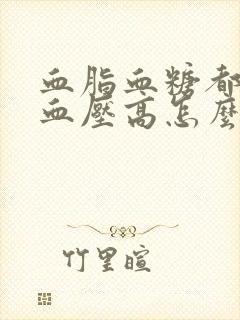 血脂血糖都
血壓高怎麼
竹里暄